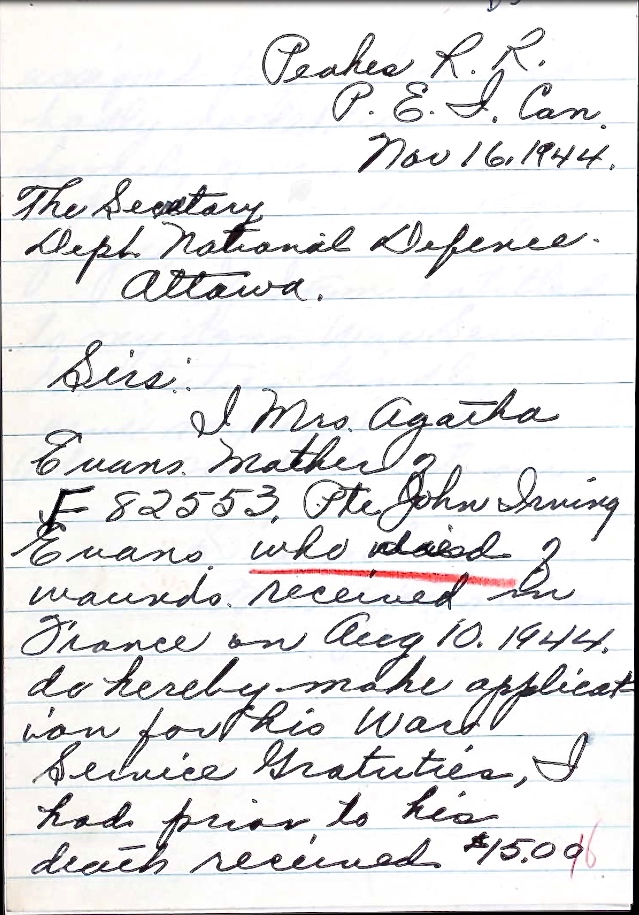 Peakes R. R.
P. E. I. Can.
Nov 16. 1944.
The Secretary
Dept. National Defence.
Ottawa.
Sirs:
I Mrs. Agatha
Evans. Mother of
F 82553. Pte John Irving
Evans. who died of
wounds. received in
France on Aug 10. 1944.
do hereby make applicat-
ion for his War
Service Gratuties, I
had prior to his
death received $15.00